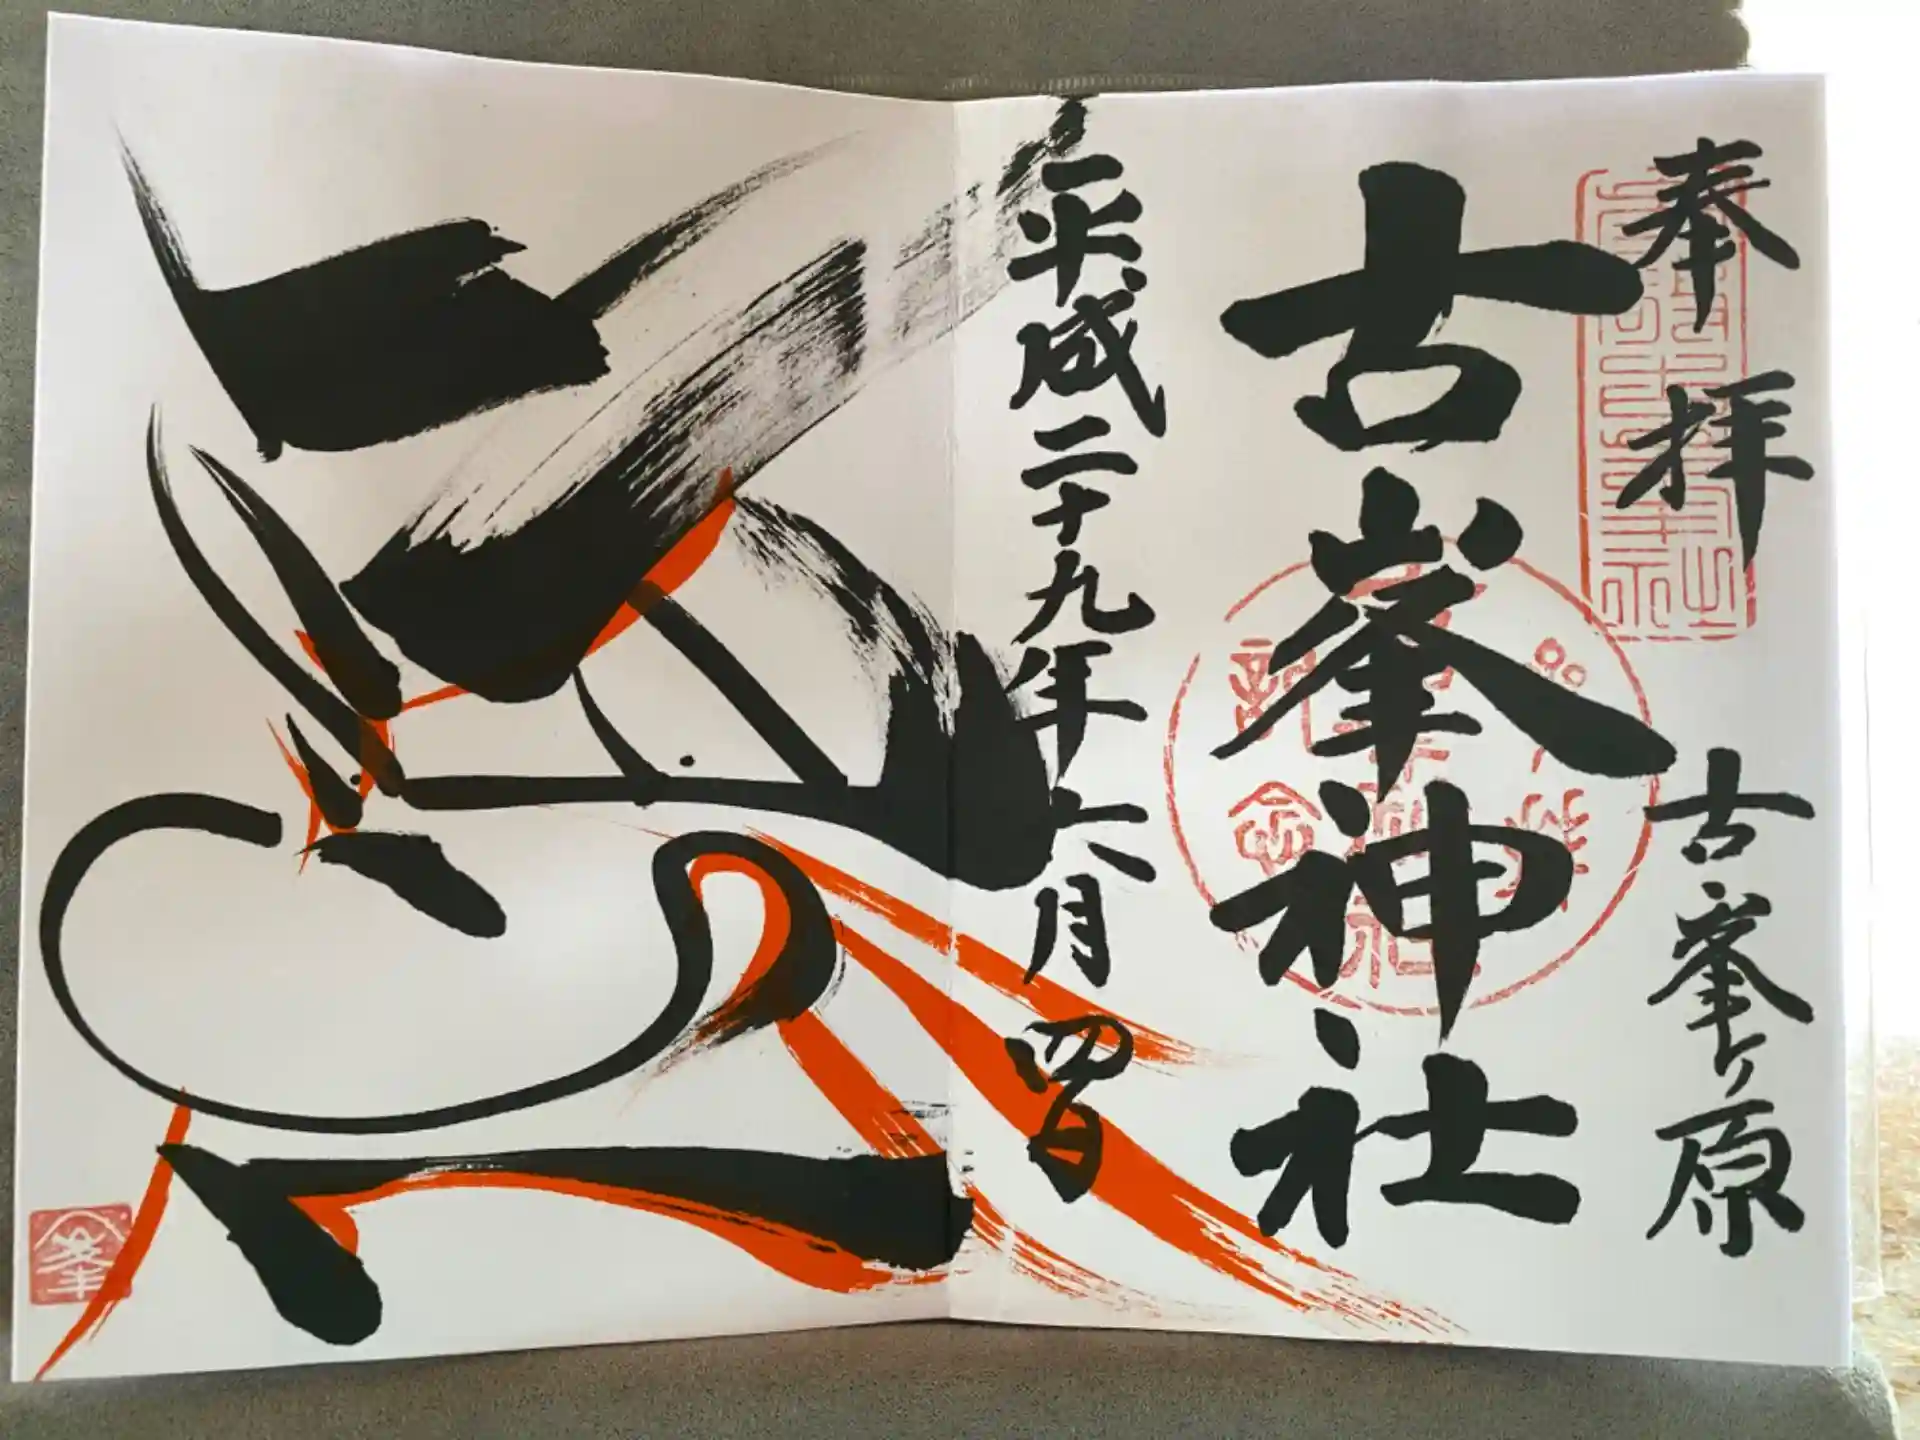 奉拝
古峯ヶ原
古峯神社
平成二十九年六月四日
峯